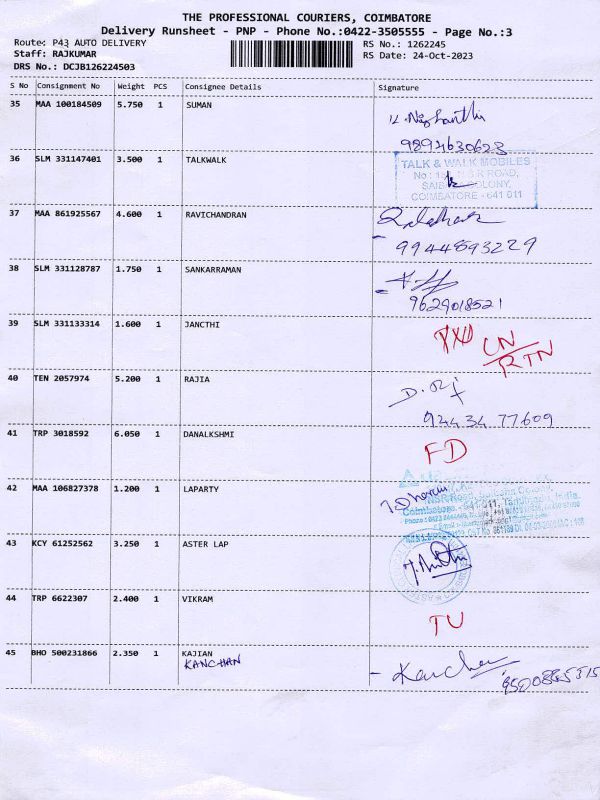 THE PROFESSIONAL COURIERS, COIMBATORE
Delivery Runsheet - PNP - Phone No.:0422-3505555 - Page No.:3
Route: P43 AUTO DELIVERY
RS No.: 1262245
Staff: RAJKUMAR
RS Date: 24-Oct-2023
DRS No.: DCJB126224503
S No Consignment No Weight PCS Consignee Details Signature
35 MAA 100184509 5.750 1 SUMAN
36 SLM 331147401 3.500 1 TALKWALK
TALK & WALK MOBILES
ROAD,
COLONY,
COIMBATORE - 641 011
37 MAA 861925567 4.600 1 RAVICHANDRAN
9944893229
38 SLM 331128787 1.750 1 SANKARRAMAN
9629018521
39 SLM 331133314 1.600 1 JANCTHI
CN
RTN
40 TEN 2057974 5.200 1 RAJIA
94434 77609
41 TRP 3018592 6.050 1 DANALKSHMI
FD
42 MAA 106827378 1.200 1 LAPARTY
43 KCY 61252562 3.250 1 ASTER LAP
44 TRP 6622307 2.400 1 VIKRAM
TU
45 BHO 500231866 2.350 1 KAJIAN
KANCHAN